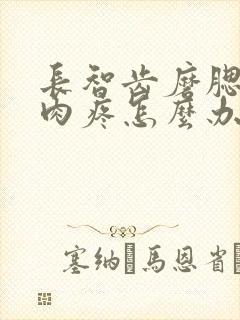 長智齿磨腮
肉疼怎麼办
塞纳馬恩省